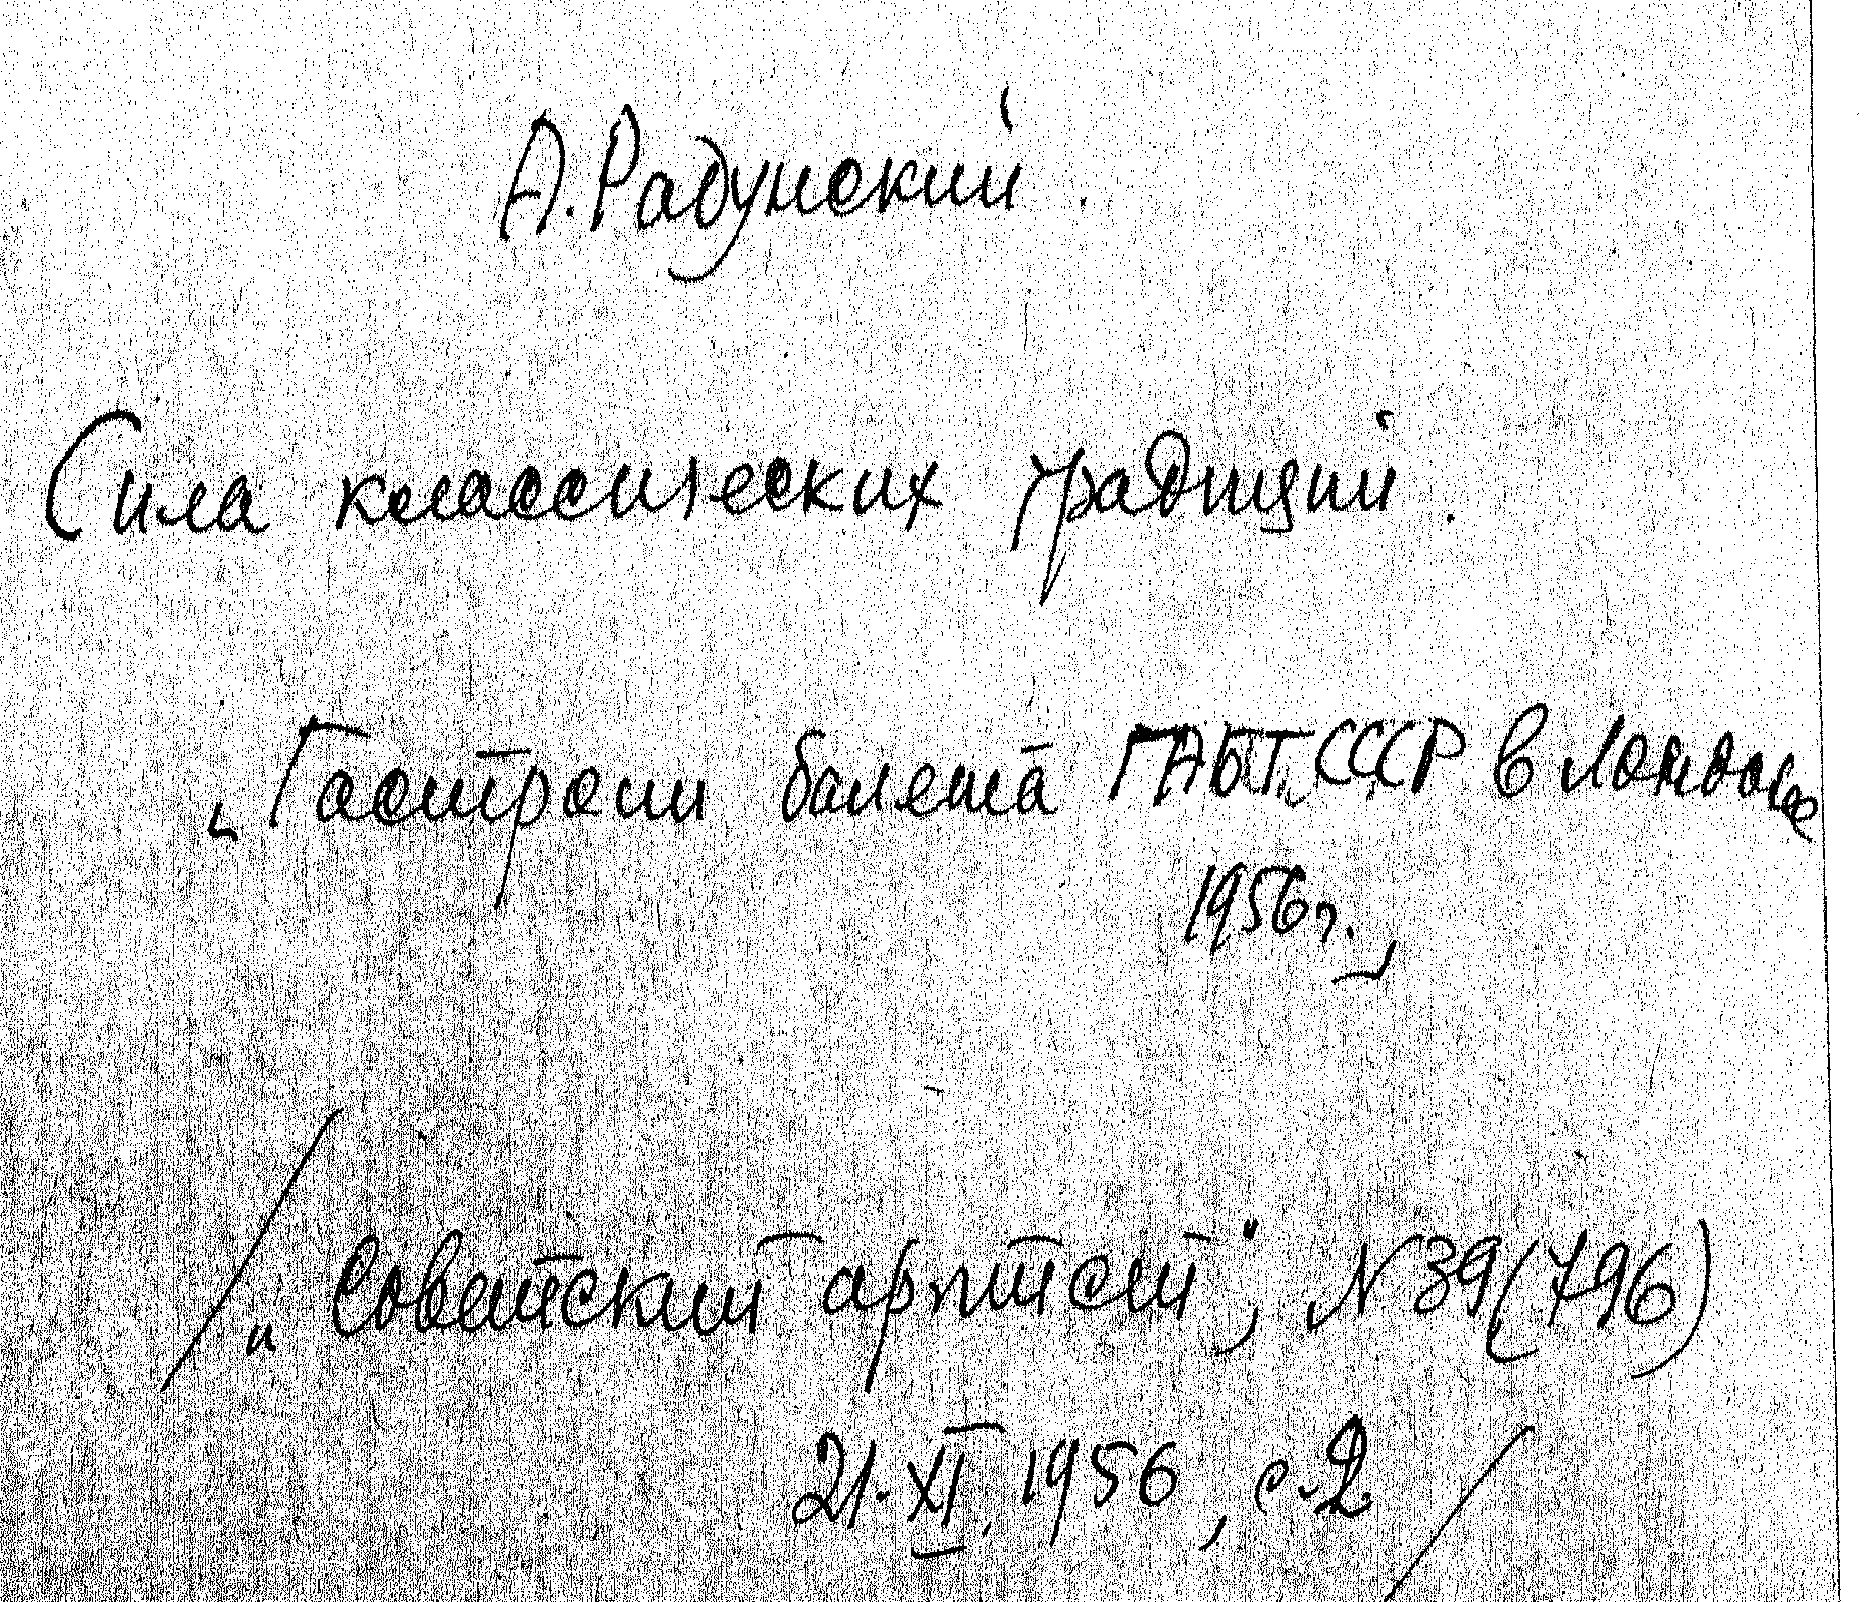 А. Радунский.
Сила классических традиций.
„Гастроли балета ГАБТ СССР в Лондоне
1956г.,
/„Советский артист", N 39(796)
21.XI.1956, с.2/